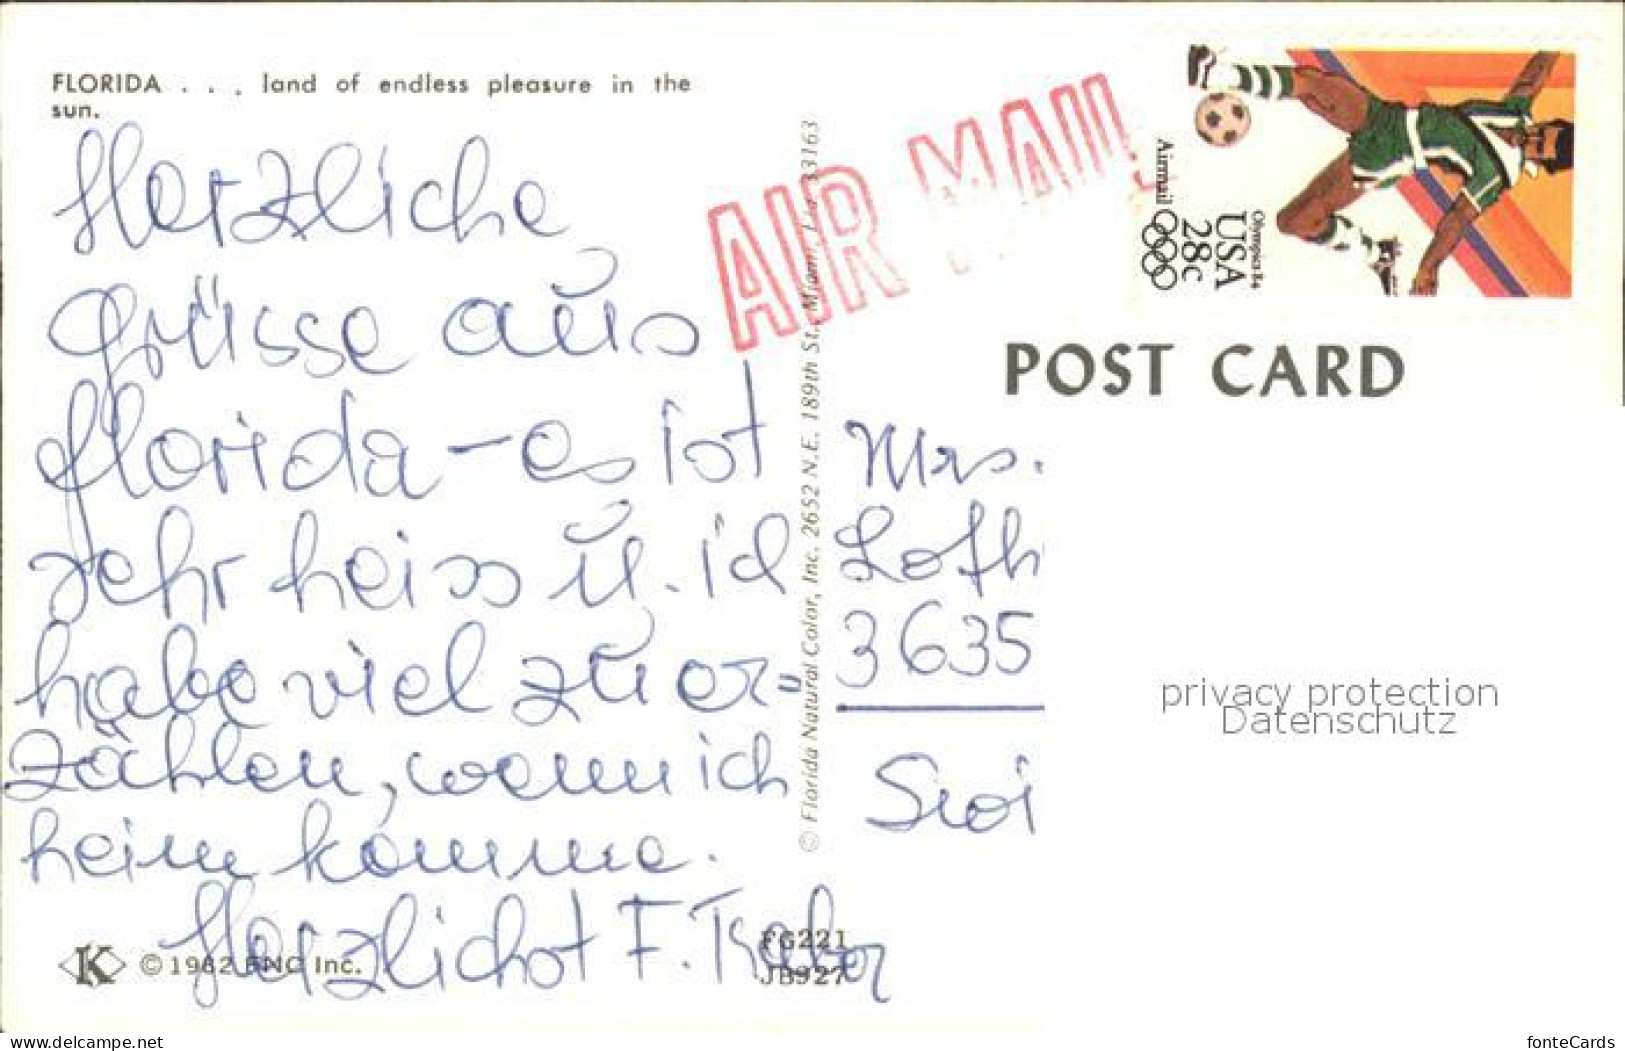 FLORIDA . . . land of endless pleasure in the
sun.
Herzliche
Grüsse aus
Florida - es ist
sehr heiss u. ich
habe viel zu er-
zählen, wenn ich
heim komme.
Herzlichst F.
K © 1982 FNC Inc.
FG221
JB927
© Florida Natural Color, Inc. 2652 N.E. 189th St., Miami, Fla. 33163
AIR MAIL
Airmail
Olympics 84
USA
28c
POST CARD
Mrs.
Loth
3635
privacy protection
Datenschutz
delcampe.net
fonteCards